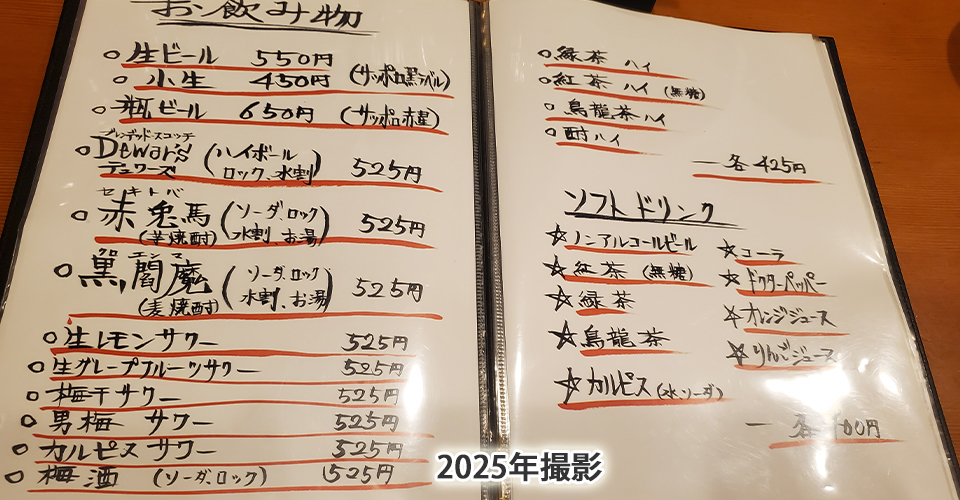 お飲み物
○生ビール 550円
○小生 450円 (サッポロ黒ラベル)
○瓶ビール 650円 (サッポロ赤星)
ブレンデッドスコッチ
○Dewar's (ハイボール
デュワーズ ロック、水割) 525円
セキトバ
○赤兎馬 (ソーダ、ロック
(芋焼酎) 水割、お湯) 525円
クロエンマ
○黒閻魔 (ソーダ、ロック
(麦焼酎) 水割、お湯) 525円
○生レモンサワー 525円
○生グレープフルーツサワー 525円
○梅干サワー 525円
○男梅サワー 525円
○カルピスサワー 525円
○梅酒 (ソーダ、ロック) 525円
○緑茶ハイ
○紅茶ハイ (無糖)
○烏龍茶ハイ
○酎ハイ
―各425円
ソフトドリンク
☆ノンアルコールビール
☆紅茶 (無糖)
☆緑茶
☆烏龍茶
☆カルピス (水、ソーダ)
☆コーラ
☆ドクターペッパー
☆オレンジジュース
☆りんごジュース
―各 00円
2025年撮影